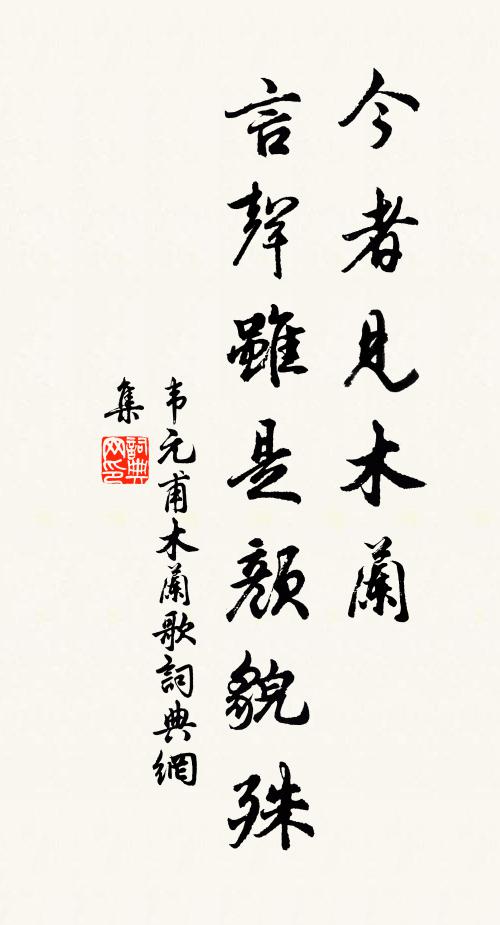 今者見木蘭
言聲雖是顏貌殊
韦元甫木蘭歌詞典網
集
詞典網印